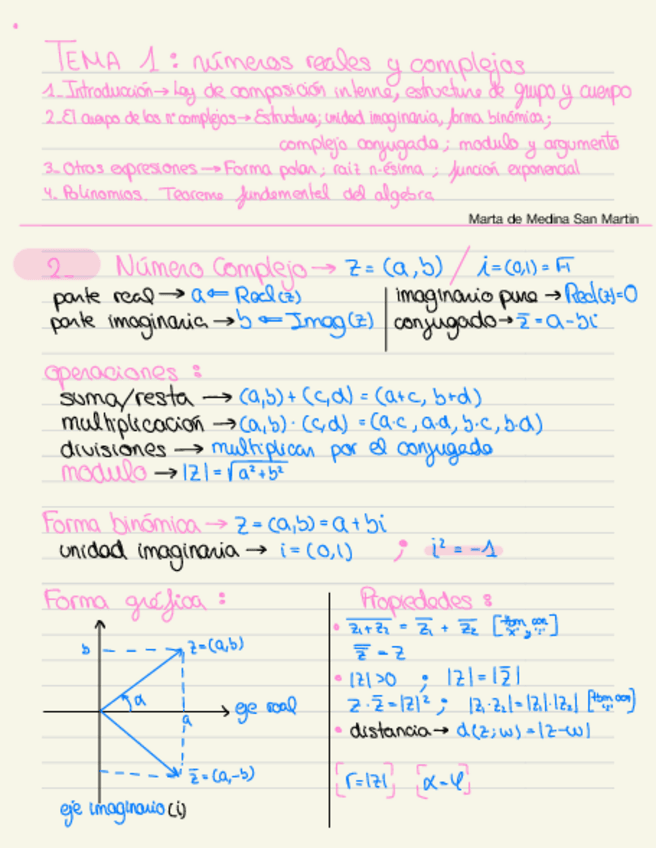 TEMA 1: números reales y complejos
1_Introducción → Ley de composición interna, estructura de grupo y cuerpo
2_El cuerpo de los nº complejos → Estructura; unidad imaginaria, forma binómica;
complejo conjugado; modulo y argumento
3_ Otras expresiones → Forma polar; raíz n-ésima; función exponencial
4. Polinomios. Teorema fundamental del algebra
Marta de Medina San Martin
2_ Número Complejo → z = (a,b) / i=(0,1) = √-1
parte real → a ⇐ Real(z)
parte imaginaria → b ⇐ Imag(z)
imaginario puro → Real(z)=0
conjugado → z̅ = a-bi
operaciones:
suma/resta → (a,b)+(c,d) = (a+c, b+d)
multiplicación → (a,b)·(c,d) = (a·c, a·d, b·c, b·d)
divisiones → multiplicar por el conjugado
modulo → |z| = √a²+b²
Forma binómica → z = (a,b) = a+bi
unidad imaginaria → i = (0,1) ; i² = -1
Forma gráfica:
b
z=(a,b)
α
a
eje real
z̅=(a,-b)
eje imaginario (i)
Propiedades:
z₁+z₂ = z̅₁ + z̅₂
z̿ = z
|z|>0 ; |z|=|z̅|
z·z̅=|z|² ; |z₁·z₂|=|z₁|·|z₂|
distancia → d(z;w)=|z-w|
[r=|z|] [α=φ]